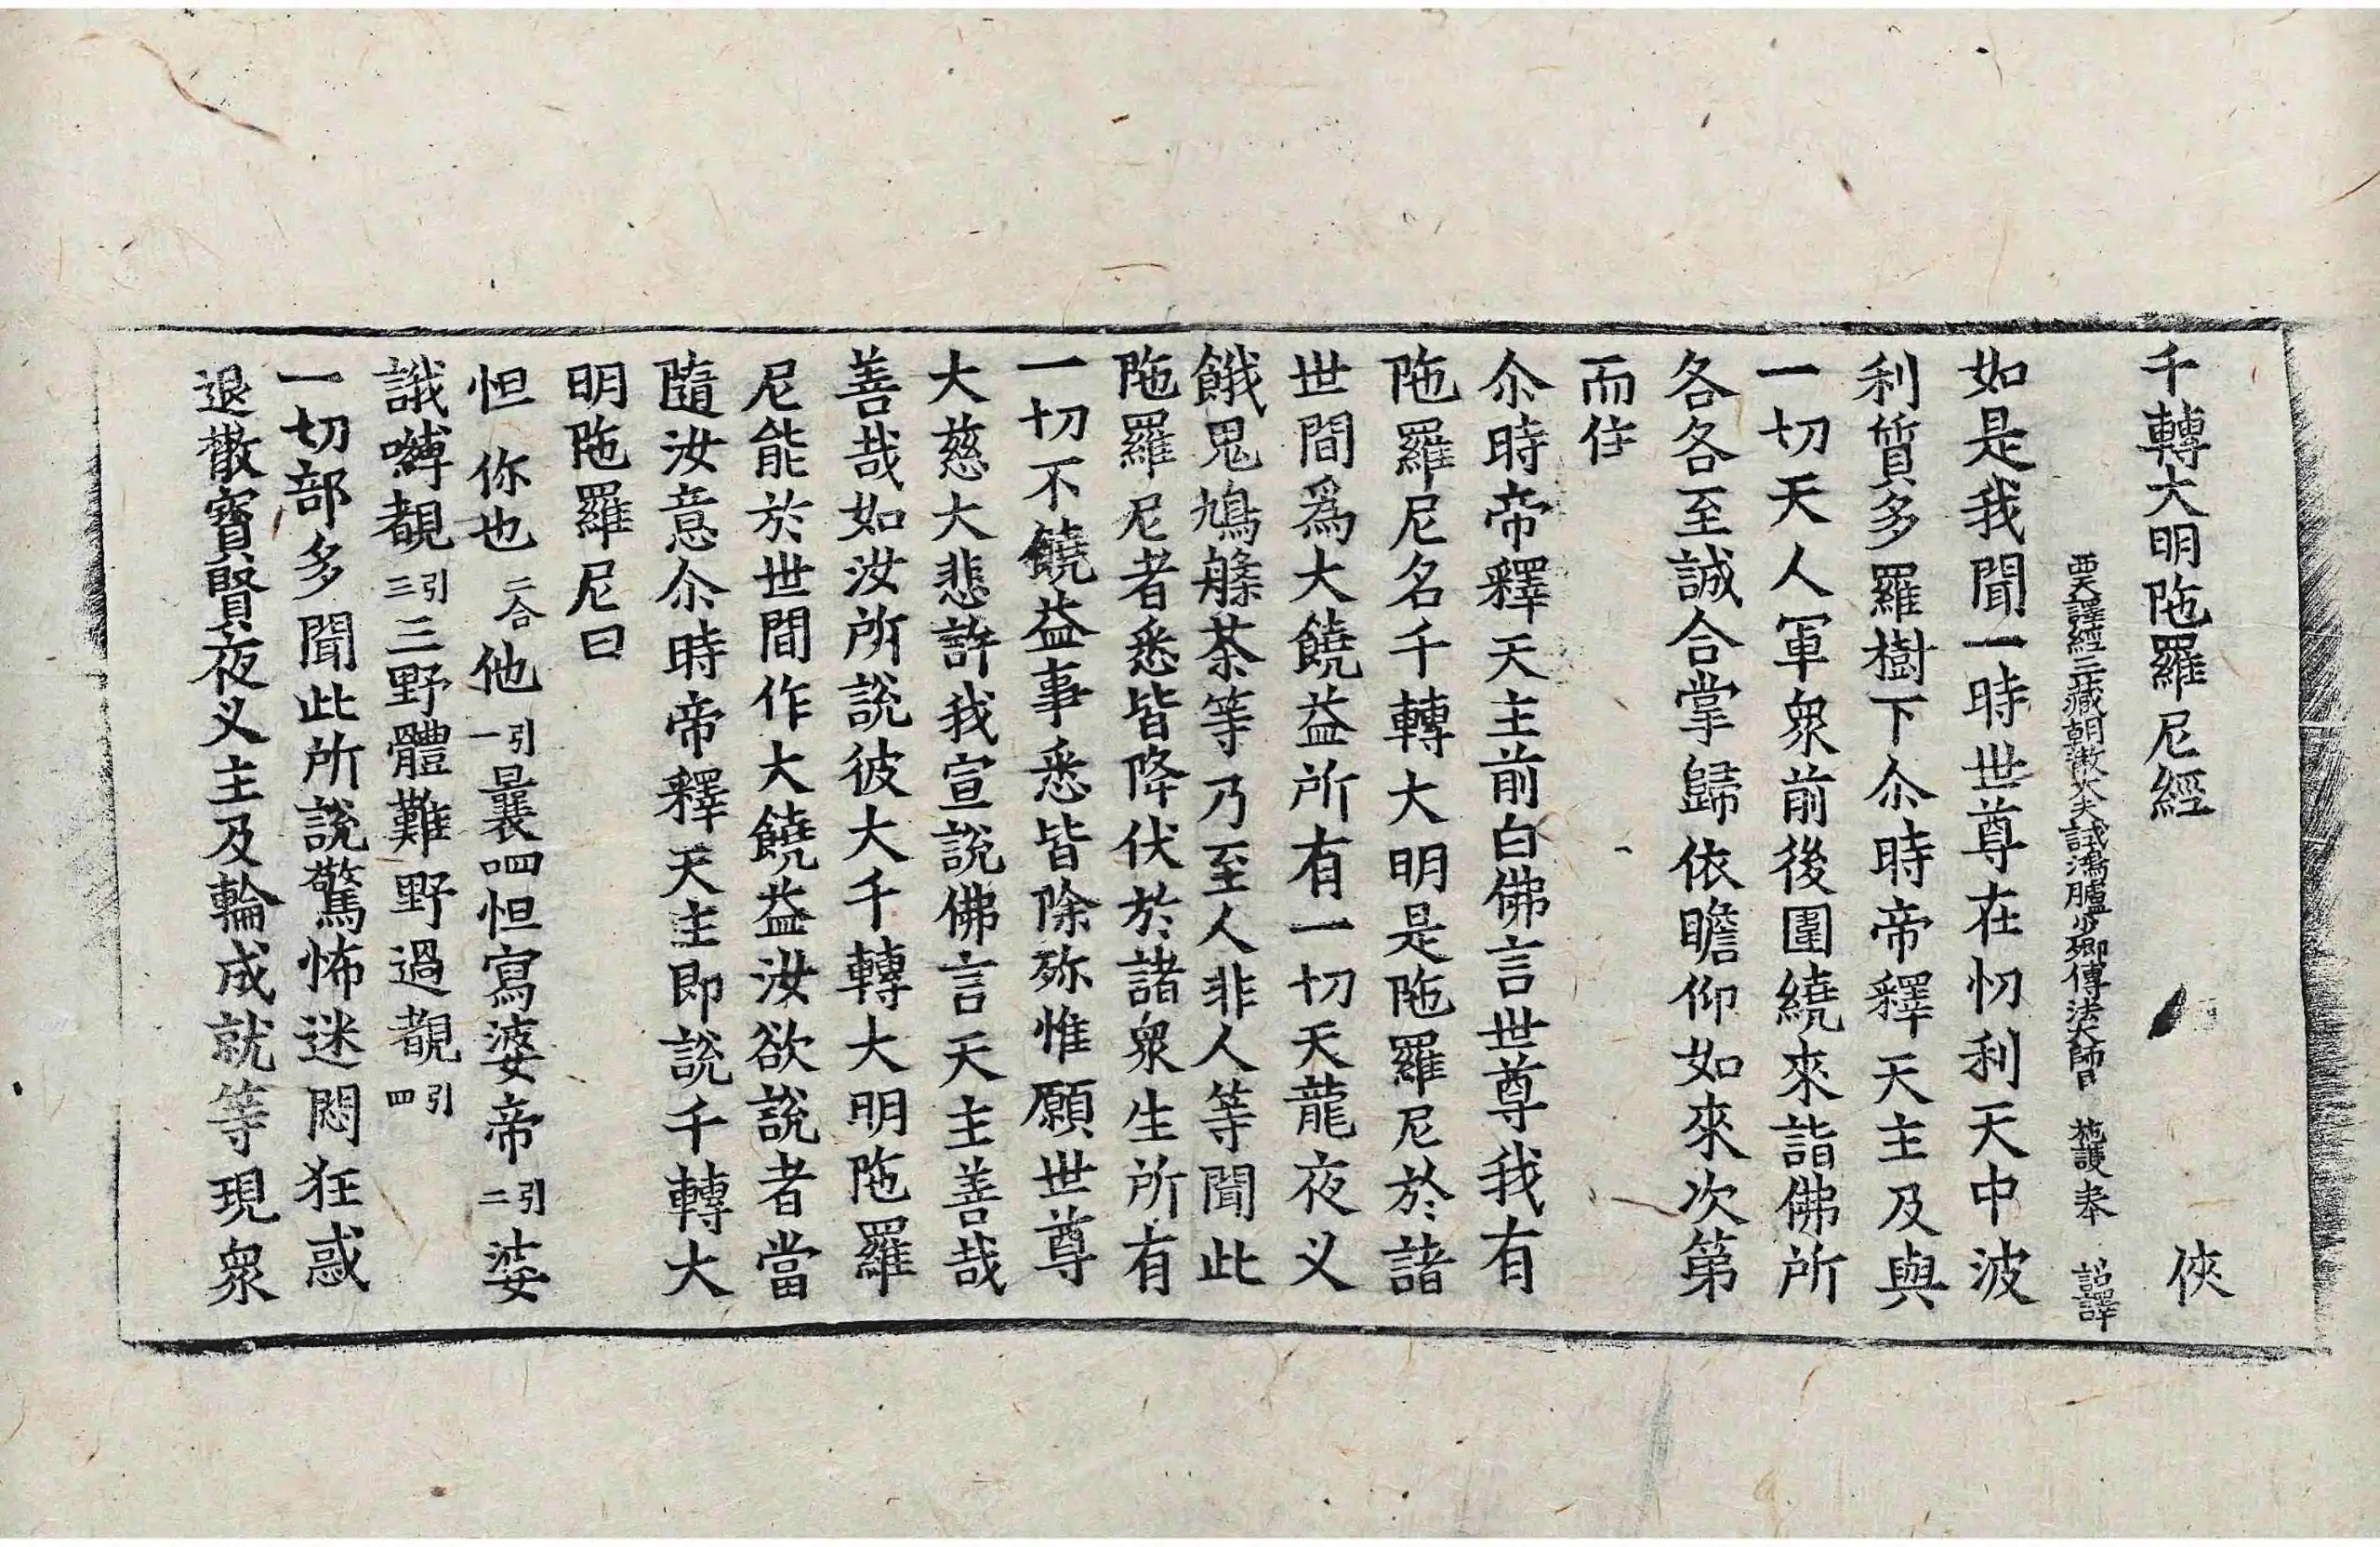 千轉大明陁羅尼經 俠
西天譯經三藏朝散大夫試鴻臚少卿傳法大師臣 施護奉 詔譯
如是我聞一時世尊在忉利天中波
利質多羅樹下尒時帝釋天主及與
一切天人軍衆前後圍繞來詣佛所
各各至誠合掌歸依瞻仰如來次第
而住
尒時帝釋天主前白佛言世尊我有
陁羅尼名千轉大明是陁羅尼於諸
世間爲大饒益所有一切天龍夜义
餓鬼鳩槃茶等乃至人非人等聞此
陁羅尼者悉皆降伏於諸衆生所有
一切不饒益事悉皆除殄惟願世尊
大慈大悲許我宣說佛言天主善哉
善哉如汝所說彼大千轉大明陁羅
尼能於世間作大饒益汝欲說者當
隨汝意尒時帝釋天主即說千轉大
明陁羅尼曰
怛 你也 二合 他 引一 曩謨呬怛寫婆帝 引二 婆
誐嚩覩 引三 三野體難野過覩 引四
一切部多聞此所說驚怖迷悶狂惑
退散寳賢夜义主及輪成就等現衆